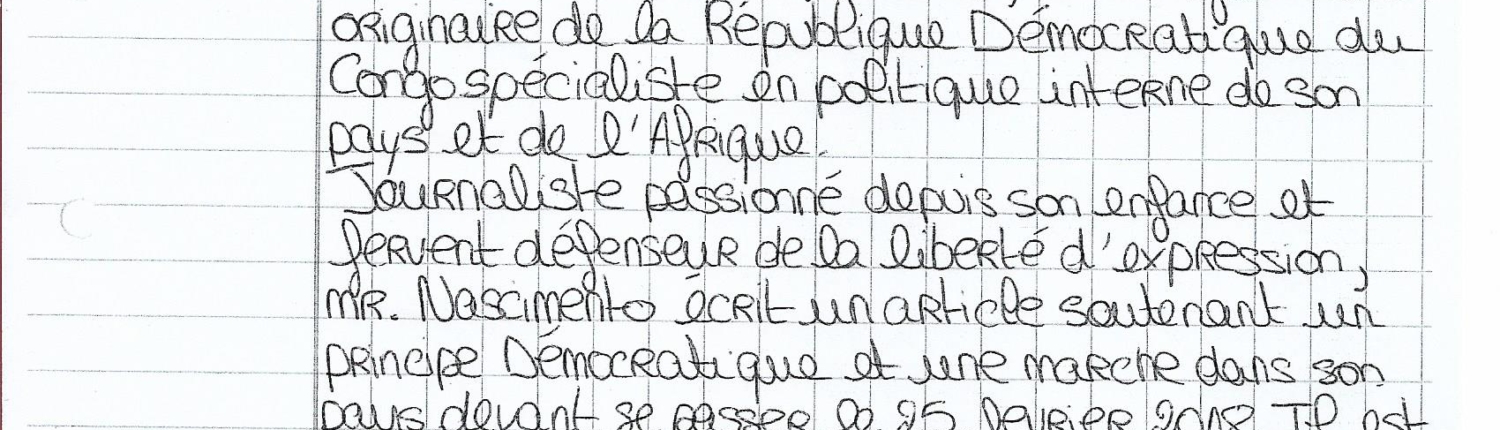 originaire de la République Démocratique du
Congo spécialiste en politique interne de son
pays et de l'Afrique.
Journaliste passionné depuis son enfance et
fervent défenseur de la liberté d'expression,
MR. Nascimento écrit un article soutenant un
principe Démocratique et une marche dans son
pays devant se passer le 25 Février 2018 Il est